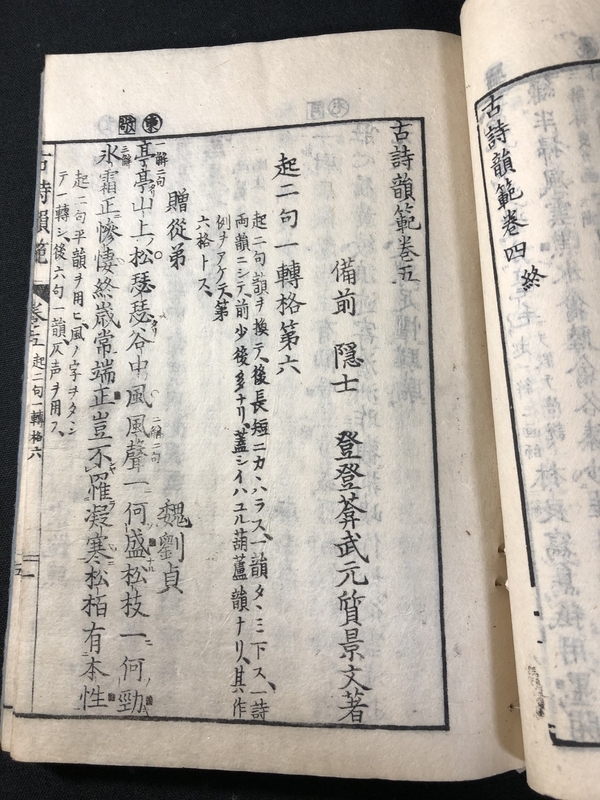 古詩韻範卷四終
古詩韻範卷五
備前 隱士 登登菴武元質景文著
起二句一轉格第六
起二句韻ヲ換テ、後長短ニカヽハラス、一韻タヽミ下ス、一詩
兩韻ニシテ前少後多ナリ、蓋シイハユル葫蘆韻ナリ、其作
例ヲアケテ、第
六格トス、
贈從弟 魏劉貞
東
敬
一解二句
亭亭山上松瑟瑟谷中風風聲一何盛松枝一何勁
二解二句
三解
氷霜正慘悽終歲常端正豈不罹凝寒松栢有本性
起二句平韻ヲ用ヒ、風ノ字ヲタヽシ
テ一轉シ、後六句一韻、仄声ヲ用フ、
古詩韻範 卷五 起二句一轉格六